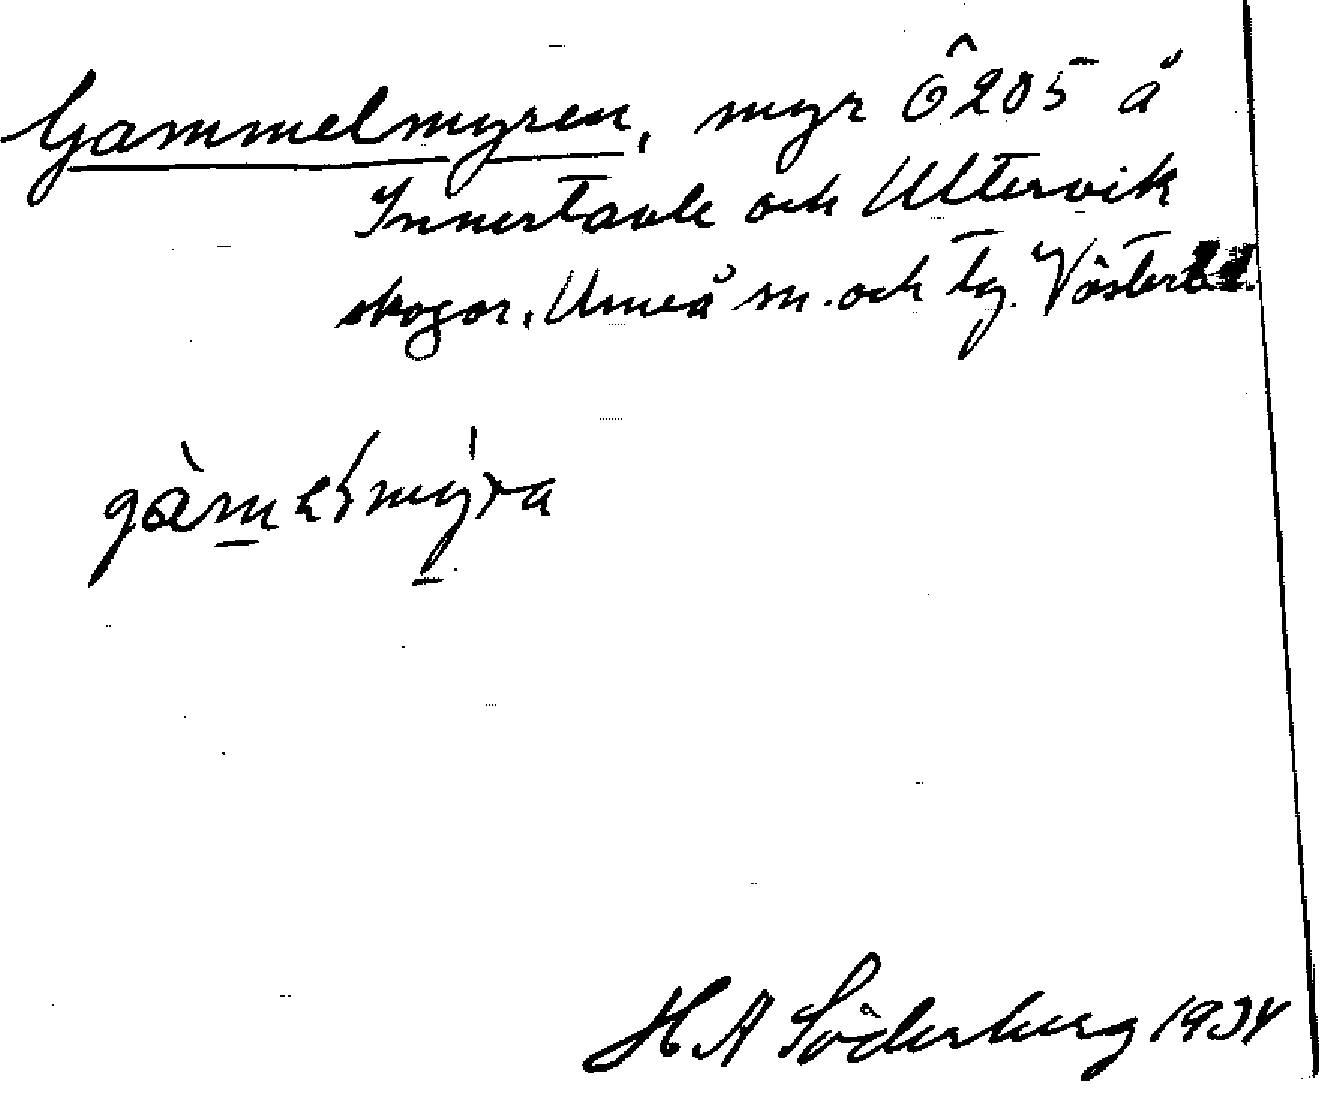 Gammelmyren, myr Ö 205 å
Innertavle och Ultervik
skogar, Umeå sn. och tg. Västerb.
H A Söderberg 1934